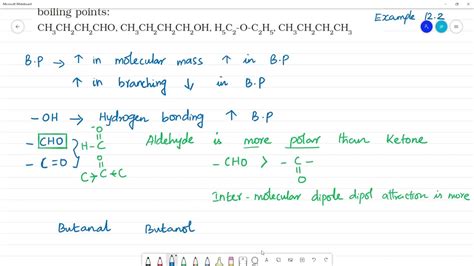 Microsoft Whiteboard
boiling points:
Example 12.2
CH₃CH₂CH₂CHO, CH₃CH₂CH₂CH₂OH, H₅C₂-O-C₂H₅, CH₃CH₂CH₂CH₃
B.P → ↑ in molecular mass ↑ in B.P
↑ in branching ↓ in B.P
-OH → Hydrogen bonding ↑ B.P
- CHO
H-C
O
Aldehyde is more polar than Ketone
- C=O
O
C→C←C
- CHO > - C -
O
Inter-molecular dipole dipol attraction is more
Butanal Butanol